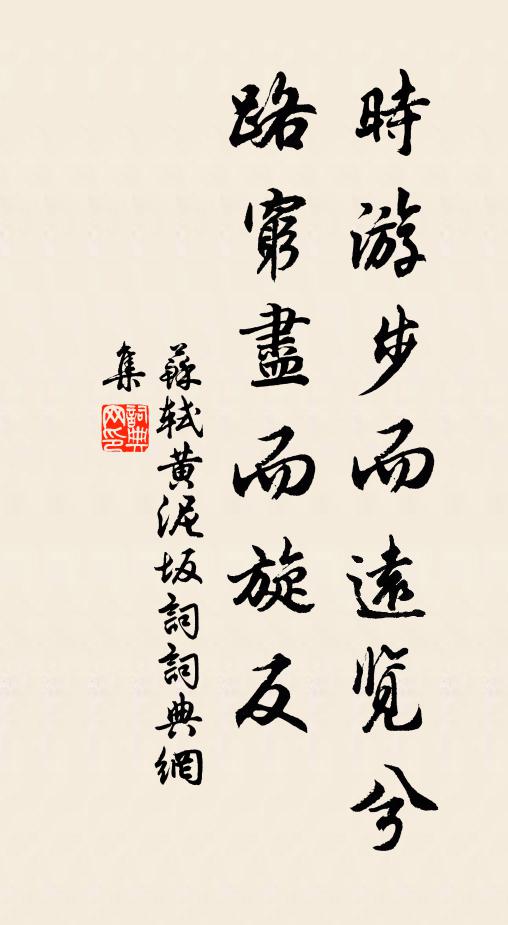 時游步而遠览兮
路窮盡而旋反
蘇轼黄泥坂詞詞典網
集
詞典網印